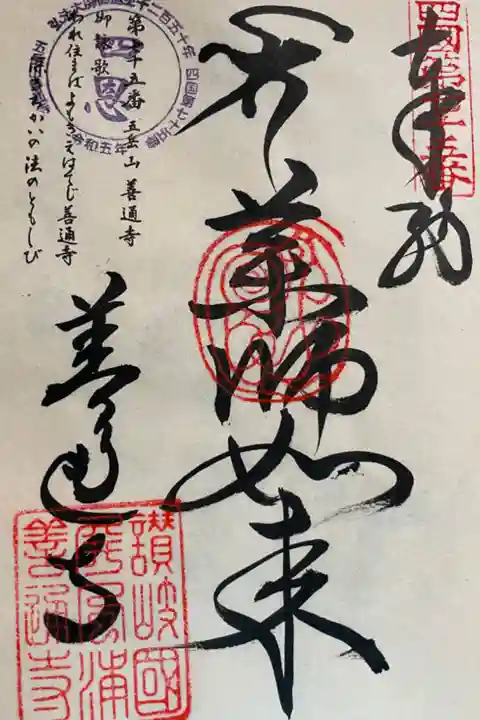 奉納
薬師如来
善通寺
第七十五番 五岳山 善通寺
御詠歌
われ住まばよもきえはてじ善通寺
かいの法のともしび
四恩
四国第七十五番
令和五年
讃岐國
屏風浦
善通寺